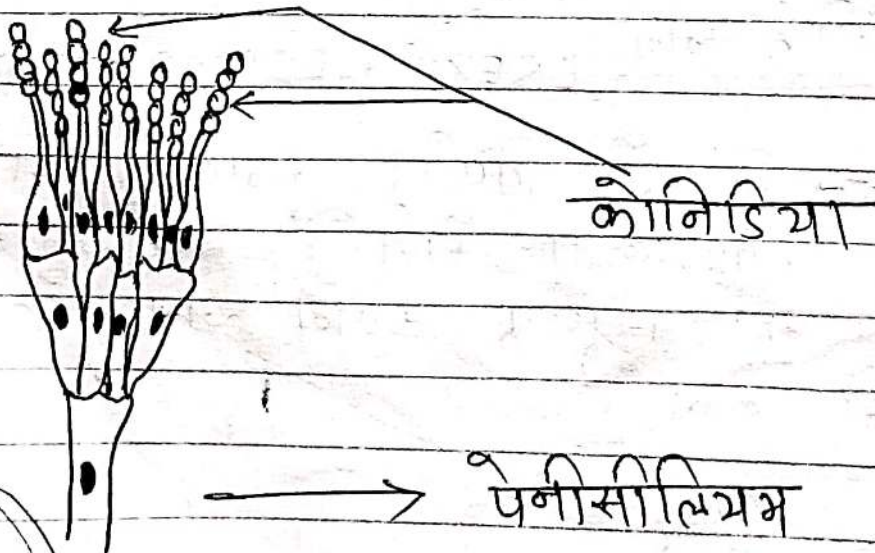 कोनिडिया
पेनीसीलियम